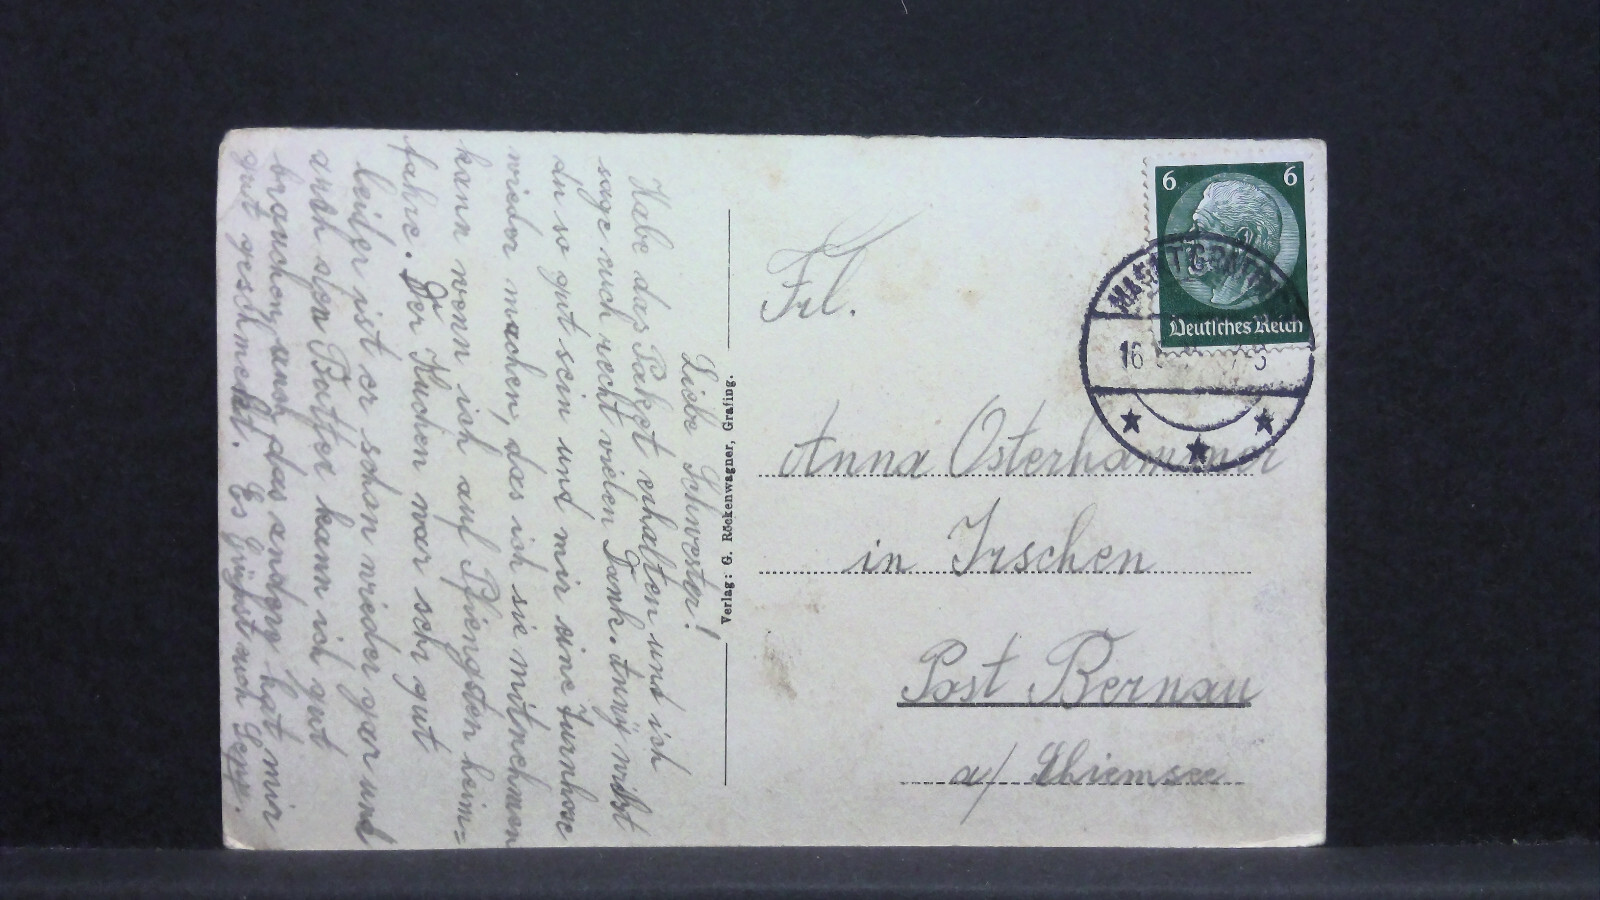 Liebe Schwester!
Habe das Paket erhalten und ich
sage euch recht vielen Dank. Anny wirst
du so gut sein und mir eine Turnhose
wieder machen, das ich sie mitnehmen
kann wenn ich auf Pfiengsten heim=
fahre. Der Kuchen war sehr gut
leider ist er schon wieder gar und
auch den Butter kann ich gut
brauchen, auch das andere hat mir
gut geschmekt. Es grüßt euch Sepp.
Verlag: G. Röckenwagner, Grafing.
6 6
Deutsches Reich
16
Frl.
Anna Osterhammer
in Irschen
Post Bernau
a/ Chiemsee